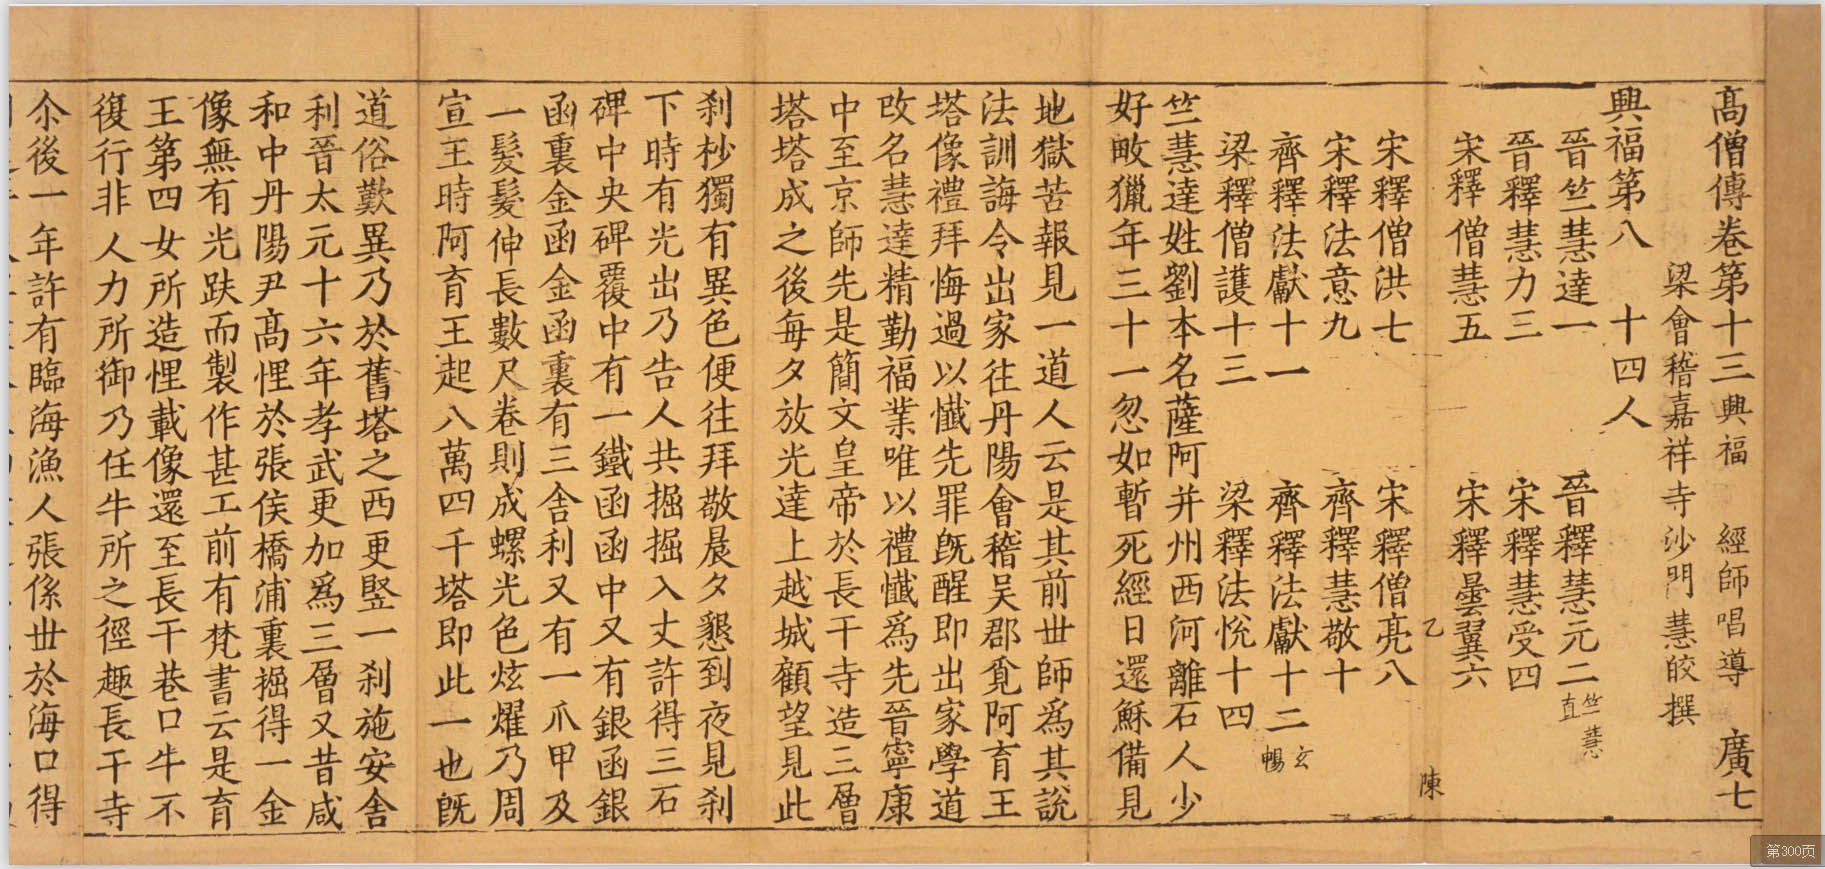 高僧傳卷第十三興福　經師唱導　廣七
梁會稽嘉祥寺沙門慧皎撰
興福第八　十四人
晉竺慧達一　晉釋慧元二竺慧直
晉釋慧力三　宋釋慧受四
宋釋僧慧五　宋釋曇翼六
乙　陳
宋釋僧洪七　宋釋僧亮八
宋釋法意九　齊釋慧敬十
齊釋法獻十一　齊釋法獻十二玄暢
梁釋僧護十三　梁釋法悅十四
竺慧達姓劉本名薩阿并州西河離石人少
好畋獵年三十一忽如暫死經日還穌備見
地獄苦報見一道人云是其前世師爲其說
法訓誨令出家往丹陽會稽吳郡覓阿育王
塔像禮拜悔過以懺先罪旣醒即出家學道
改名慧達精勤福業唯以禮懺爲先晉寧康
中至京師先是簡文皇帝於長干寺造三層
塔塔成之後每夕放光達上越城顧望見此
刹杪獨有異色便往拜敬晨夕懇到夜見刹
下時有光出乃告人共掘掘入丈許得三石
碑中央碑覆中有一鐵函函中又有銀函銀
函裏金函金函裏有三舍利又有一爪甲及
一髮髮伸長數尺卷則成螺光色炫燿乃周
宣王時阿育王起八萬四千塔即此一也旣
道俗歎異乃於舊塔之西更竪一刹施安舍
利晉太元十六年孝武更加爲三層又昔咸
和中丹陽尹高悝於張侯橋浦裏掘得一金
像無有光趺而製作甚工前有梵書云是育
王第四女所造悝載像還至長干巷口牛不
復行非人力所御乃任牛所之徑趣長干寺
尒後一年許有臨海漁人張係世於海口得
第300页